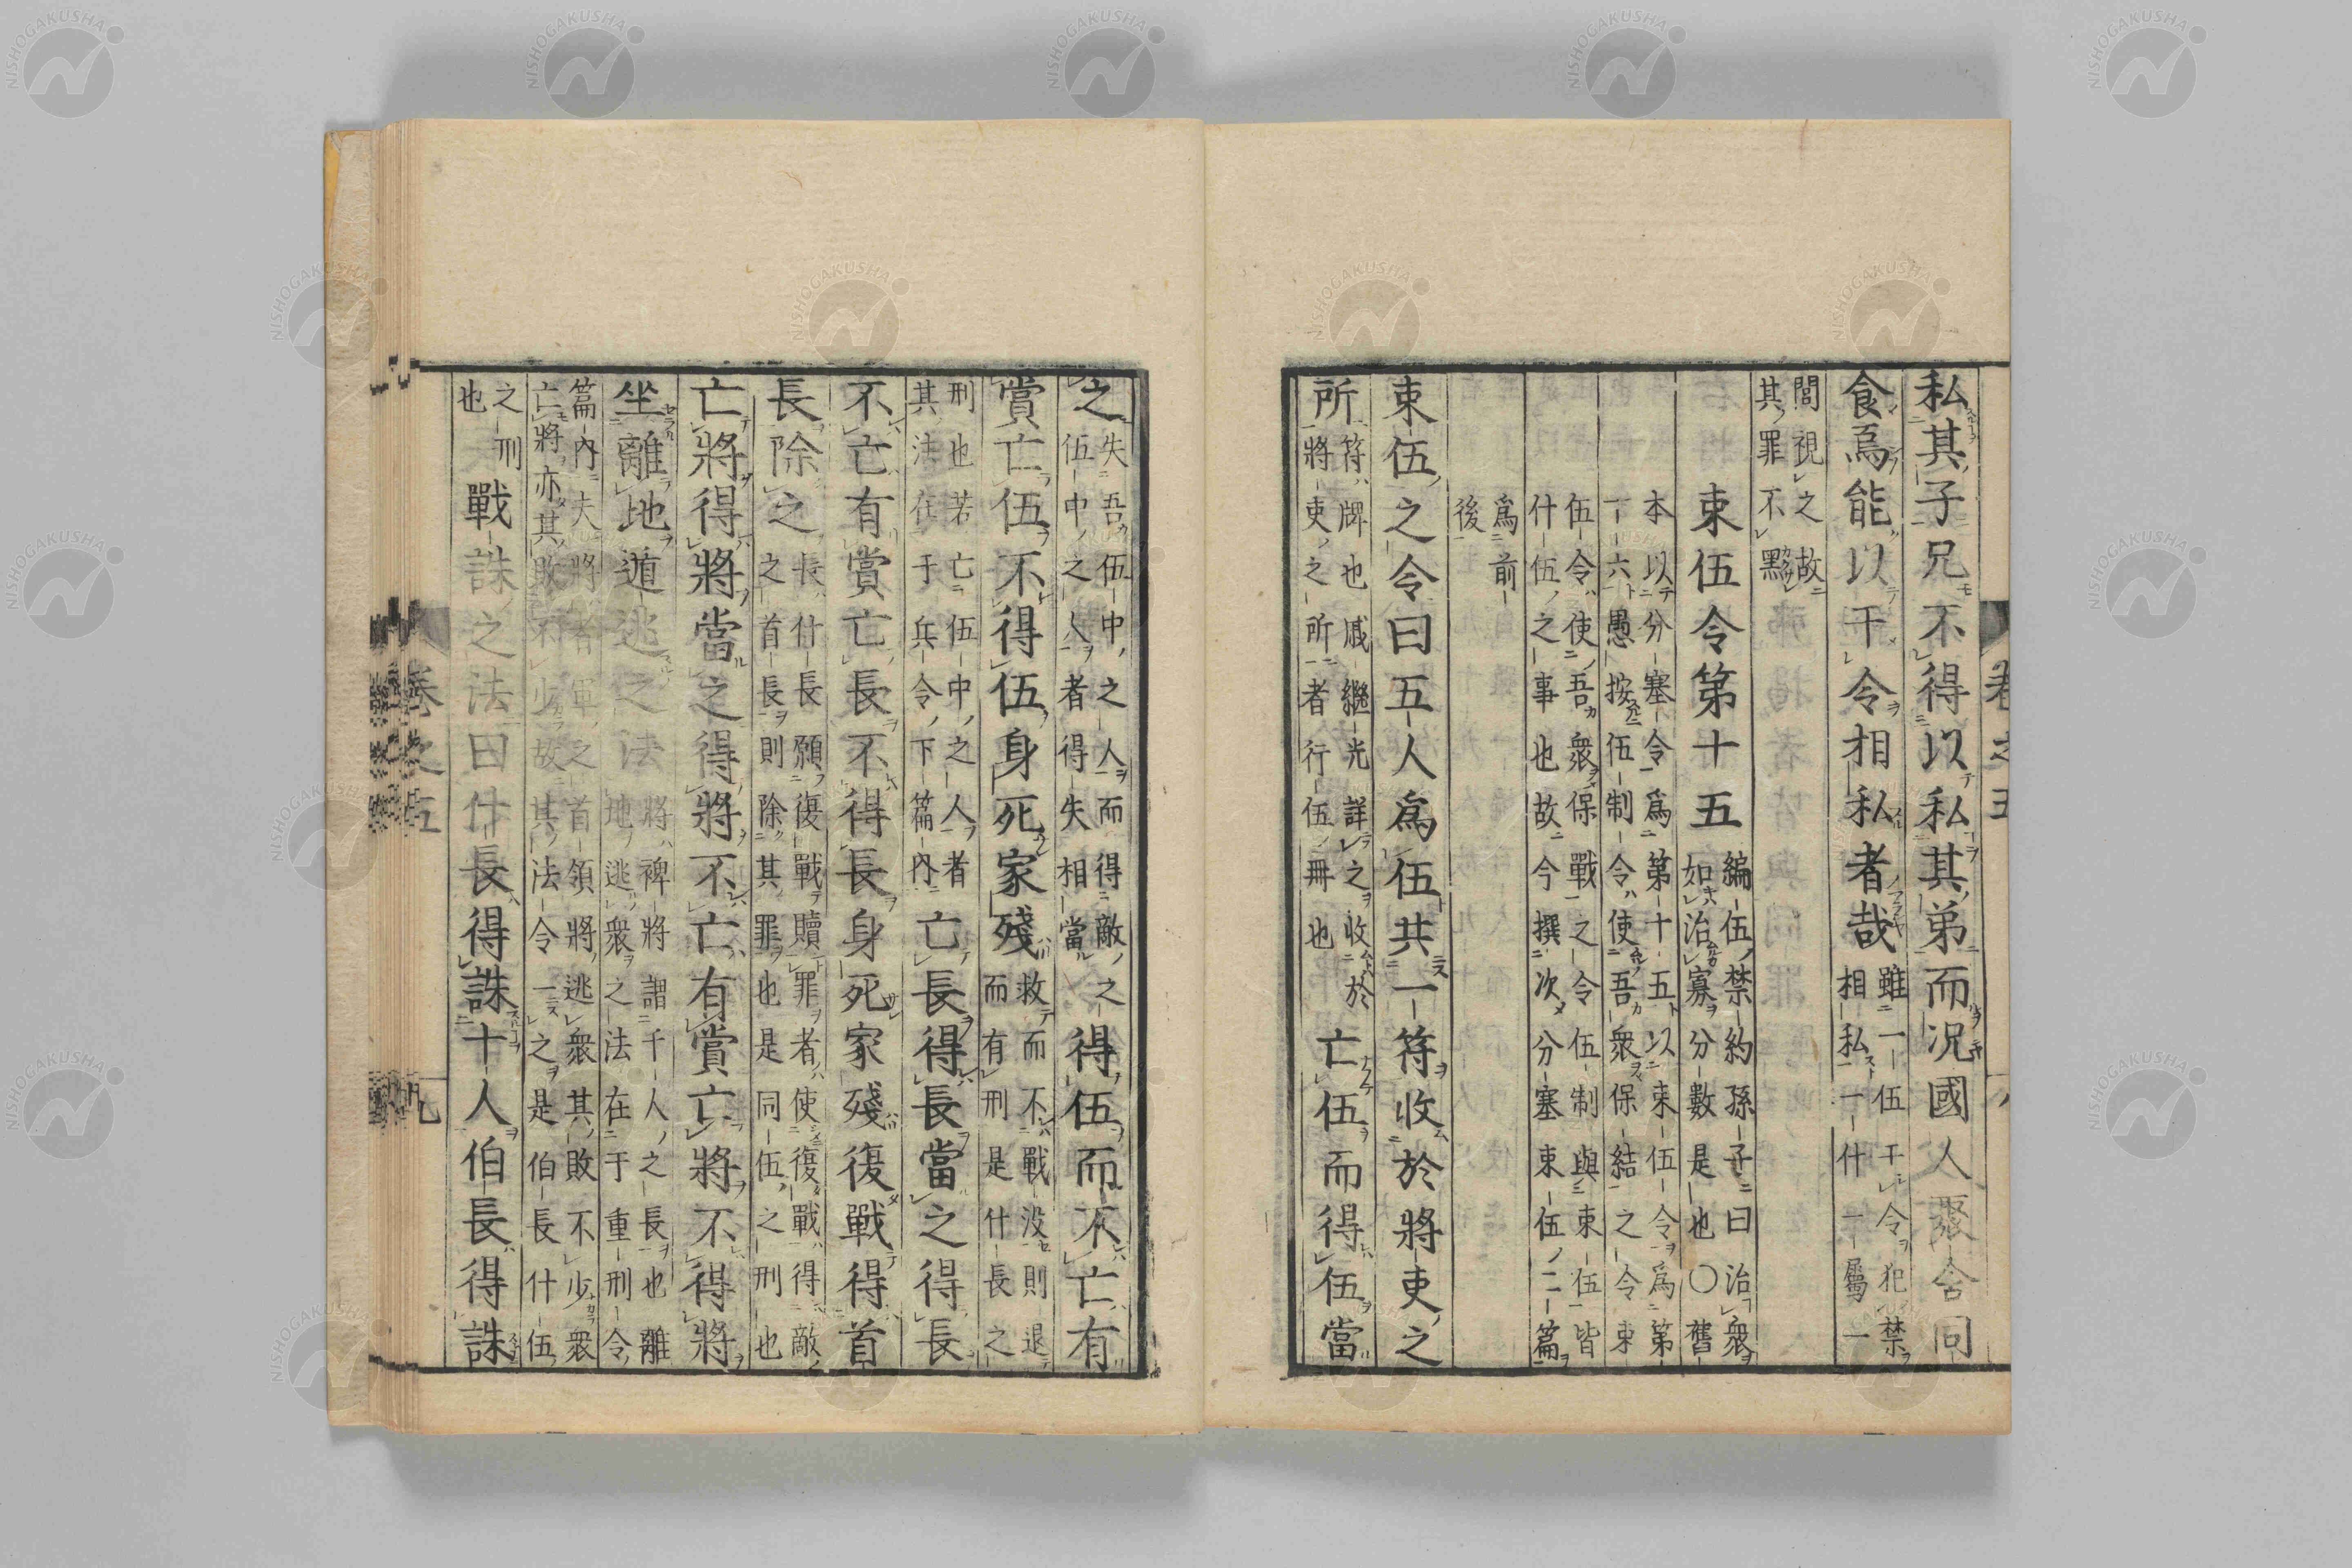 私其子兄不得以私其弟而況國人聚舍同
食焉能以干令相私者哉
雖一伍干令犯禁
相私一什一屬一
閭視之故
其罪不黥
束伍令第十五
編伍禁約孫子曰治衆
如治寡分數是也〇舊
本以分塞令爲第十五以束伍令爲第
六愚按伍制令使吾衆保結之令束
伍令使吾衆保戰之令伍制與束伍皆
什伍之事也故今撰次分塞束伍ノ二篇
爲前
後
束伍之令曰五人爲伍共一符收於將吏之
所
符牌也戚繼光詳之收於
將吏之所者行伍冊也
亡伍而得伍當
之
失吾伍中之人而得敵之
伍中之人者得失相當
得伍而不亡有
賞亡伍不得伍身死家殘
救而不戰没則退
而有刑是什長之
刑也若亡伍中之人者
其法在于兵令下篇内
亡長得長當之得長
不亡有賞亡長不得長身死家殘復戰得首
長除之
長什長願復戰贖罪者使復戰得敵
之首長則除其罪也是同伍之刑也
亡將得將當之得將不亡有賞亡將不得將
坐離地遁逃之法
將裨將謂千人之長也離
地逃衆之法在于重刑令
篇内夫將者軍之首領將逃衆其敗不少衆
亡將亦其敗不少故其法令一之是伯長什伍
之刑
也
戰誅之法曰什長得誅十人伯長得誅
卷之五
卷之五
九